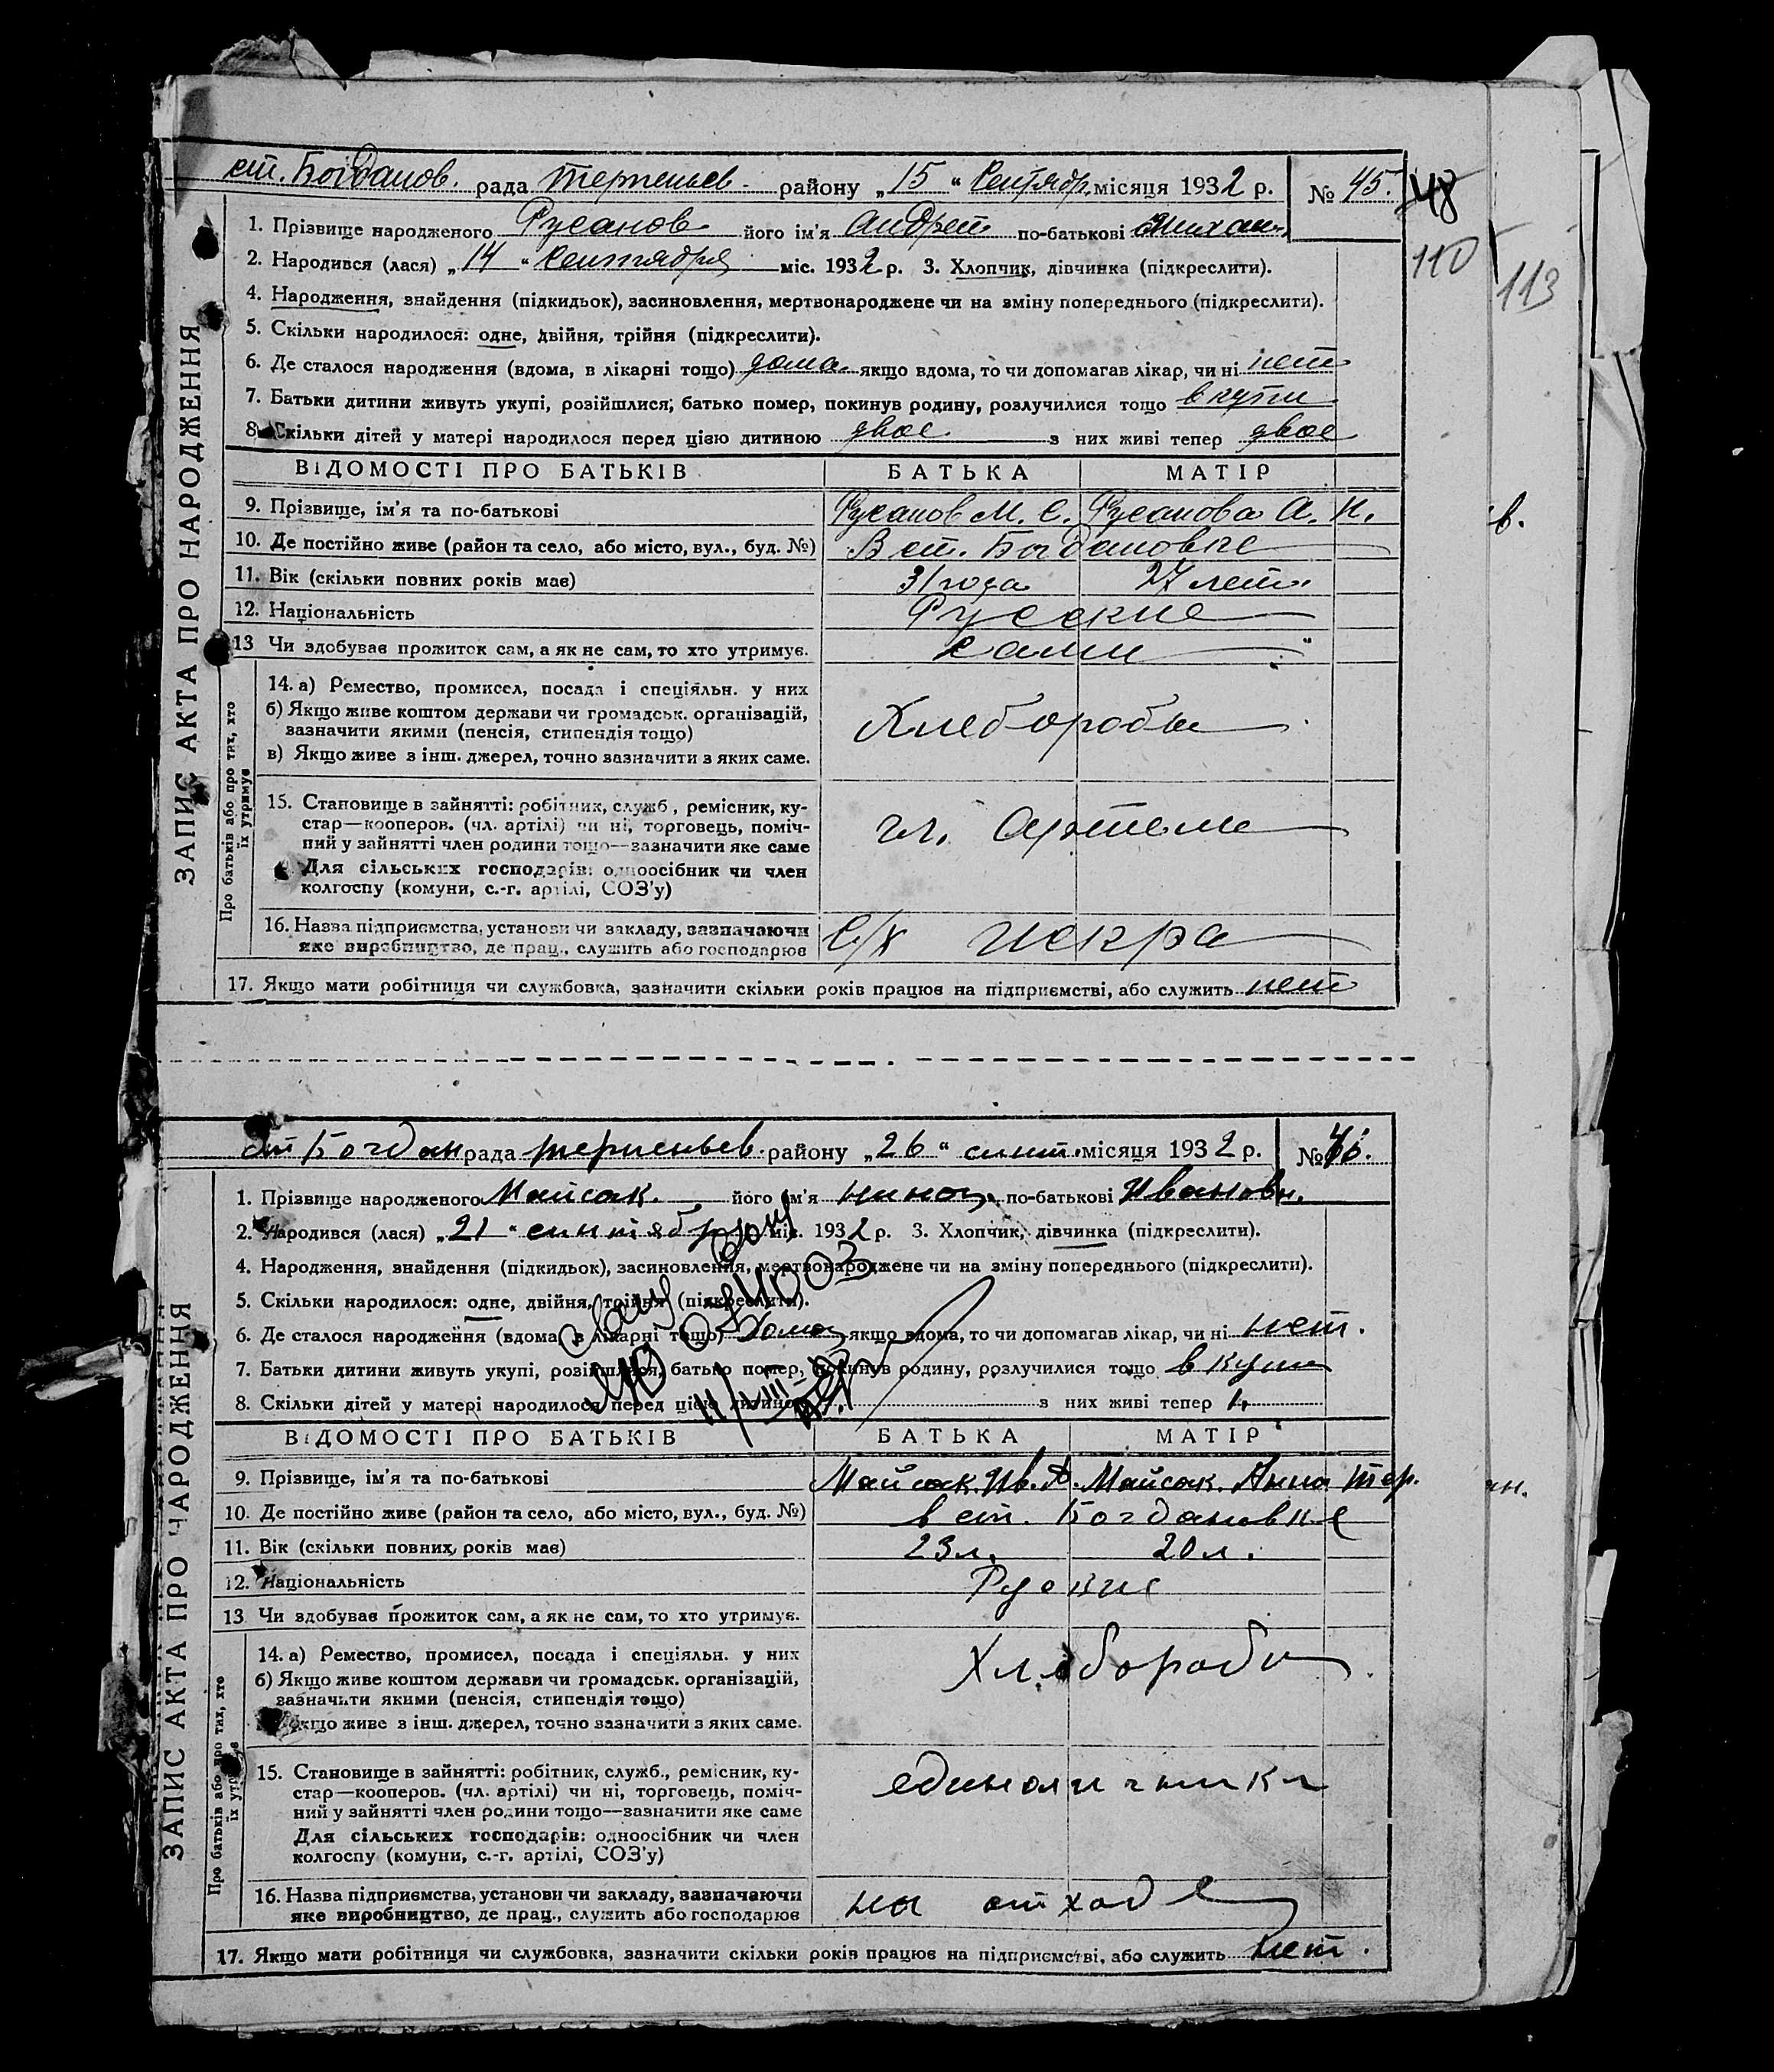 ст. Богданов. рада Терпеньев. району „15“ Сентябр. місяця 1932 р. № 45.
48
110
113
ЗАПИС АКТА ПРО НАРОДЖЕННЯ
1. Прізвище народженого Русанов його ім'я Андрей по-батькові Михаил.
2. Народився (лася) „14“ Сентября міс. 1932 р. 3. Хлопчик, дівчинка (підкреслити).
4. Народження, знайдення (підкидьок), засиновлення, мертвонароджене чи на зміну попереднього (підкреслити).
5. Скільки народилося: одне, двійня, трійня (підкреслити).
6. Де сталося народження (вдома, в лікарні тощо) дома якщо вдома, то чи допомагав лікар, чи ні нет
7. Батьки дитини живуть укупі, розійшлися; батько помер, покинув родину, розлучилися тощо вкупи
8. Скільки дітей у матері народилося перед цією дитиною двое з них живі тепер двое
ВІДОМОСТІ ПРО БАТЬКІВ БАТЬКА МАТІР
9. Прізвище, ім'я та по-батькові Русанов М. С. Русанова А. Н.
в.
10. Де постійно живе (район та село, або місто, вул., буд. №) В ст. Богдановке
11. Вік (скільки повних років має) 31 года 27 лет
12. Національність Русские
13 Чи здобуває прожиток сам, а як не сам, то хто утримує. Сами "
Про батьків або про тих, хто їх утримує
14. а) Ремество, промисел, посада і спеціяльн. у них
б) Якщо живе коштом держави чи громадськ. організацій,
зазначити якими (пенсія, стипендія тощо)
Хлеборобы
в) Якщо живе з інш. джерел, точно зазначити з яких саме.
15. Становище в зайнятті: робітник, служб., ремісник, ку-
стар—кооперов. (чл. артілі) чи ні, торговець, поміч-
ний у зайнятті член родини тощо—зазначити яке саме
чл. Артели
Для сільських господарів: одноосібник чи член
колгоспу (комуни, с.-г. артілі, СОЗ'у)
16. Назва підприємства, установи чи закладу, зазначаючи
яке виробництво, де прац., служить або господарює
С/х Искра
17. Якщо мати робітниця чи службовка, зазначити скільки років працює на підприємстві, або служить нет
ст Богдан рада терпеньев. району „26“ сент. місяця 1932 р. № 46.
ЗАПИС АКТА ПРО НАРОДЖЕННЯ
1. Прізвище народженого Майсак. його ім'я Нина по-батькові Ивановн.
2. Народився (лася) „21“ синтября міс. 1932 р. 3. Хлопчик, дівчинка (підкреслити).
4. Народження, знайдення (підкидьок), засиновлення, мертвонароджене чи на зміну попереднього (підкреслити).
5. Скільки народилося: одне, двійня, трійня (підкреслити).
6. Де сталося народження (вдома, в лікарні тощо) дома якщо вдома, то чи допомагав лікар, чи ні нет.
7. Батьки дитини живуть укупі, розійшлися, батько помер, покинув родину, розлучилися тощо в купи
8. Скільки дітей у матері народилося перед цією дитиною з них живі тепер 1.
ВІДОМОСТІ ПРО БАТЬКІВ БАТЬКА МАТІР
9. Прізвище, ім'я та по-батькові Майсак. Ив. А. Майсак. Анна Тер.
ин.
10. Де постійно живе (район та село, або місто, вул., буд. №) в ст. Богдановке
11. Вік (скільки повних років має) 23 л. 20 л.
12. Національність Руские
13 Чи здобуває прожиток сам, а як не сам, то хто утримує.
Про батьків або про тих, хто їх утримує
14. а) Ремество, промисел, посада і спеціяльн. у них
Хлебороби
б) Якщо живе коштом держави чи громадськ. організацій,
зазначити якими (пенсія, стипендія тощо)
якщо живе з інш. джерел, точно зазначити з яких саме.
15. Становище в зайнятті: робітник, служб., ремісник, ку-
стар—кооперов. (чл. артілі) чи ні, торговець, поміч-
ний у зайнятті член родини тощо—зазначити яке саме
единоличники
Для сільських господарів: одноосібник чи член
колгоспу (комуни, с.-г. артілі, СОЗ'у)
16. Назва підприємства, установи чи закладу, зазначаючи
яке виробництво, де прац., служить або господарює
на отходе
17. Якщо мати робітниця чи службовка, зазначити скільки років працює на підприємстві, або служить нет.